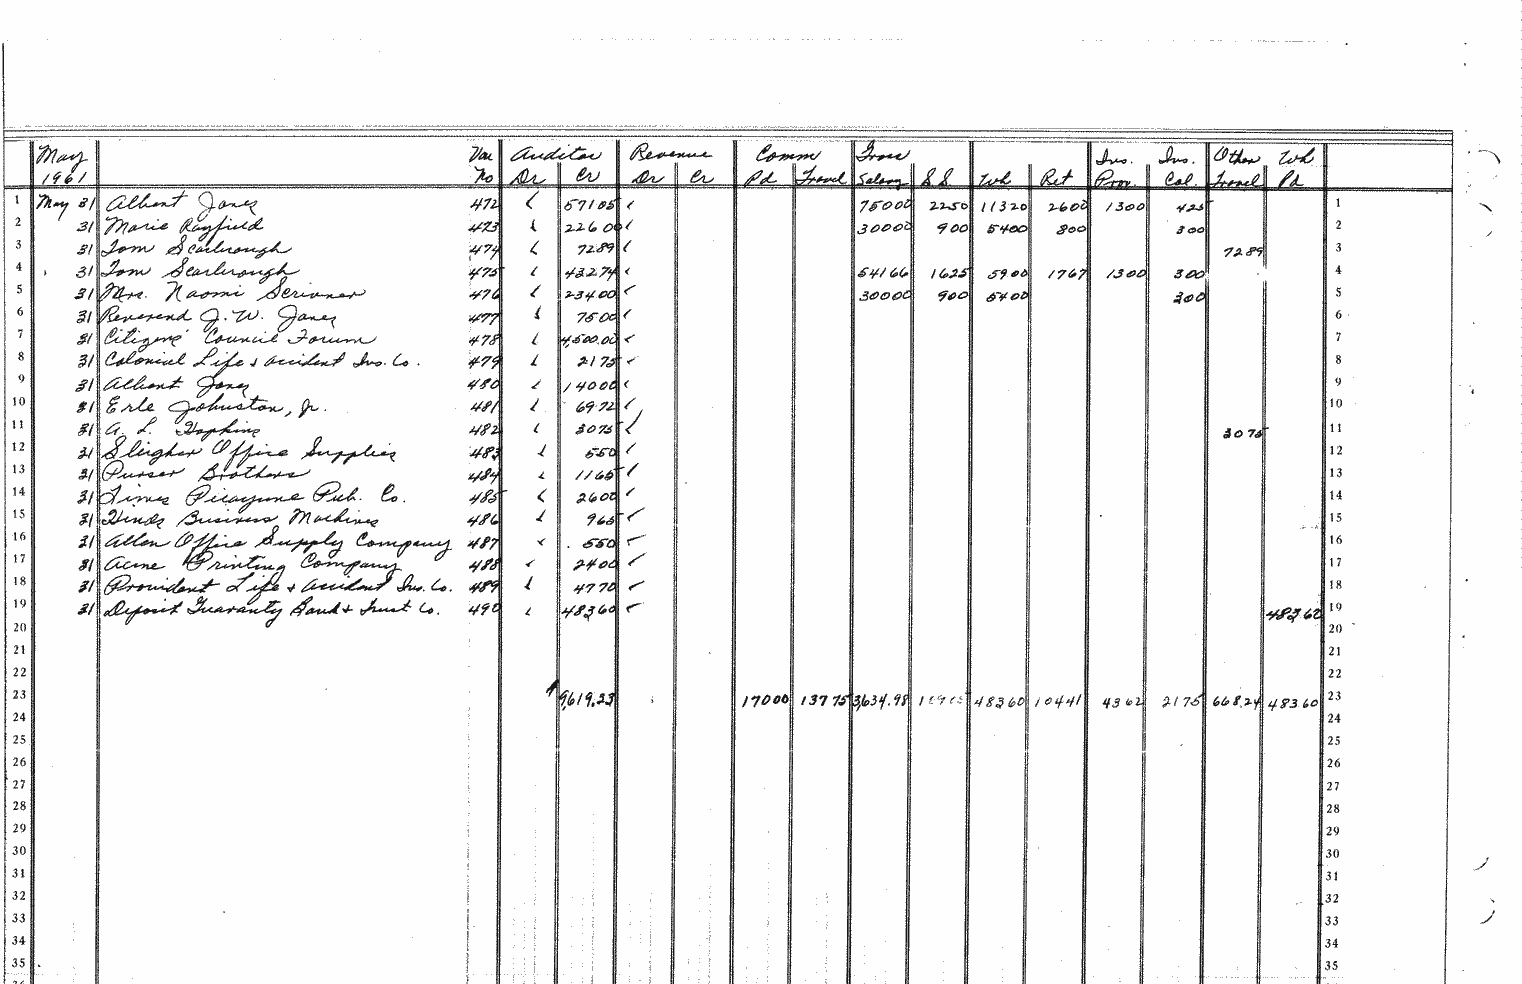 May Vou Auditor Revenue Comm Gross Ins. Ins. Other Wh
1961 No Dr Cr Dr Cr Pd Travel Salary SS Wh Ret Prov. Col. Travel Pd
1 May 31 Albert Jones 472 571 05 750 00 22 50 113 20 26 00 13 00 4 25 1
2 31 Marie Rayfield 473 226 00 300 00 9 00 54 00 8 00 3 00 2
3 31 Tom Scarbrough 474 72 89 72 89 3
4 31 Tom Scarbrough 475 432 74 541 66 16 25 59 00 17 67 13 00 3 00 4
5 31 Mrs. Naomi Scrivner 476 234 00 300 00 9 00 54 00 3 00 5
6 31 Reverend J. W. Jones 477 75 00 6
7 31 Citizens' Council Forum 478 4,500.00 7
8 31 Colonial Life & Accident Ins. Co. 479 21 75 8
9 31 Albert Jones 480 140 00 9
10 31 Erle Johnston, Jr. 481 69 72 10
11 31 A. L. Hopkins 482 30 75 30 75 11
12 31 Office Supplies 483 5 50 12
13 31 Purser Brothers 484 11 65 13
14 31 Times Picayune Pub. Co. 485 26 00 14
15 31 Hinds Business Machines 486 9 65 15
16 31 Allen Office Supply Company 487 5 50 16
17 31 Acme Printing Company 488 24 00 17
18 31 Provident Life & Accident Ins. Co. 489 47 70 18
19 31 Deposit Guaranty Bank & Trust Co. 490 483 60 483 60 19
20 20
21 21
22 22
23 9,619.23 170 00 137 75 3,634.98 483 60 104 41 43 62 21 75 668.24 483.60 23
24 24
25 25
26 26
27 27
28 28
29 29
30 30
31 31
32 32
33 33
34 34
35 35